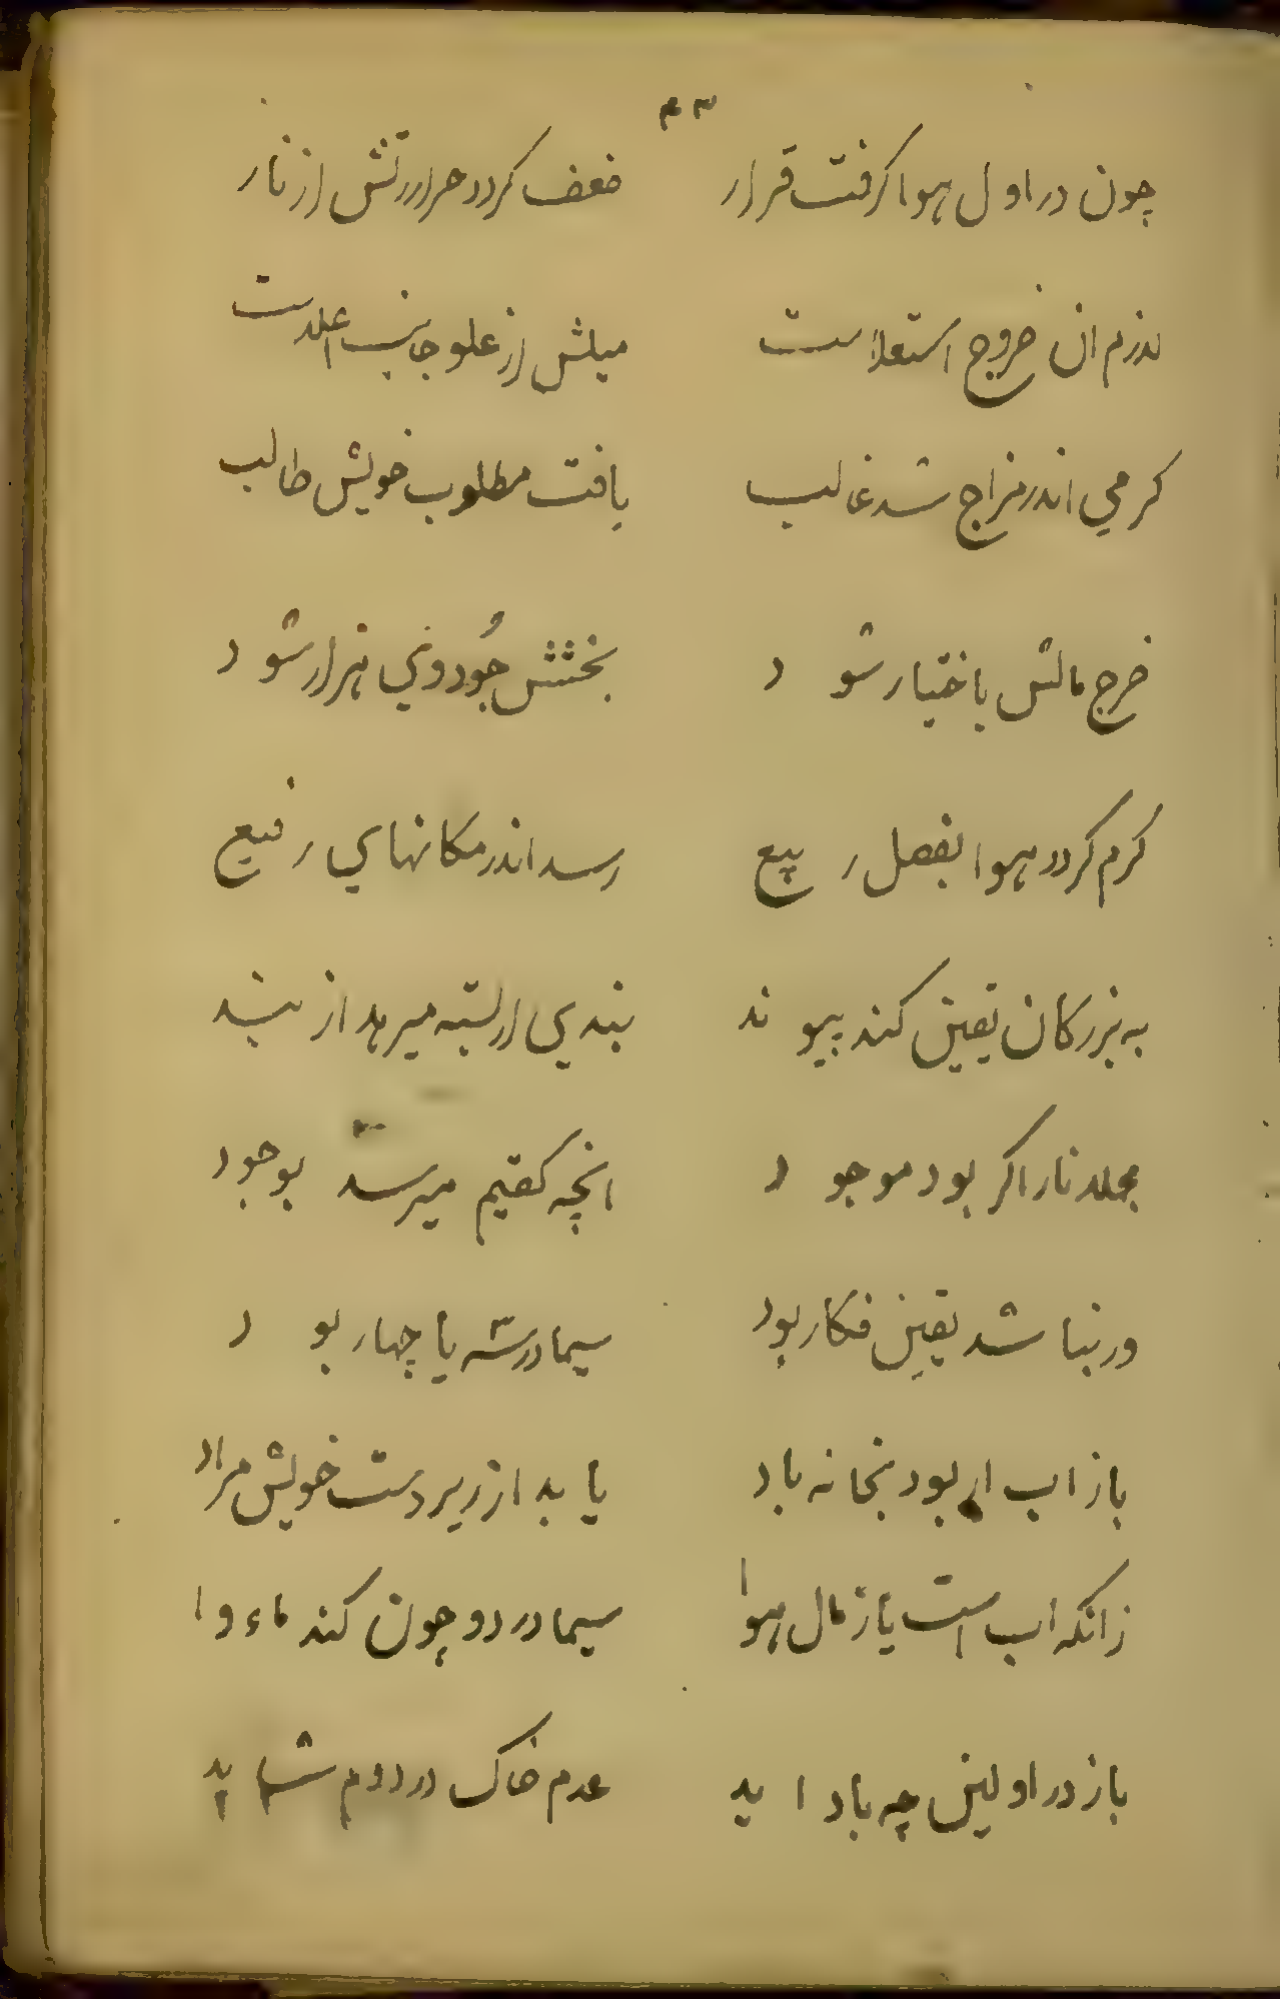 ۴۳
چون در اول هوا کرفت قرار ضعف کردد حرارتش از نار
لازم ان خروج استعلاست میلش از علو جانب اعلاست
کرمي اندر مزاج شد غالب یافت مطلوب خویش طالب
خرج مالش باختیار شود بخشش جُود وي هزار شود
کرم کردد هوا بفصل ربیع رسد اندر مکانهاي رفیع
به بزرکان یقین کند پیوند بندیي ار بسته میرهد از بند
مجلد نار اکر بود موجود انچه کفتیم میرسد بوجود
ور نباشد یقین فکار بود سیما در سه یا چهار بود
باز اب ار بود بخانه باد یابد از زیر دست خویش مراد
زانکه اب است یاز مال هوا سیما در دو چون کند ماءوا
باز در اولین چه باد اید عدم خاک در دوم شاید